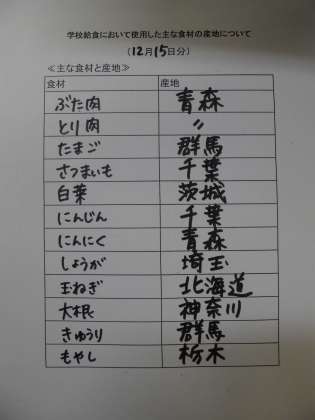 学校給食において使用した主な食材の産地について
(12月15日分)
≪主な食材と産地≫
食材 産地
ぶた肉 青森
とり肉 〃
たまご 群馬
さつまいも 千葉
白菜 茨城
にんじん 千葉
にんにく 青森
しょうが 埼玉
玉ねぎ 北海道
大根 神奈川
きゅうり 群馬
もやし 栃木